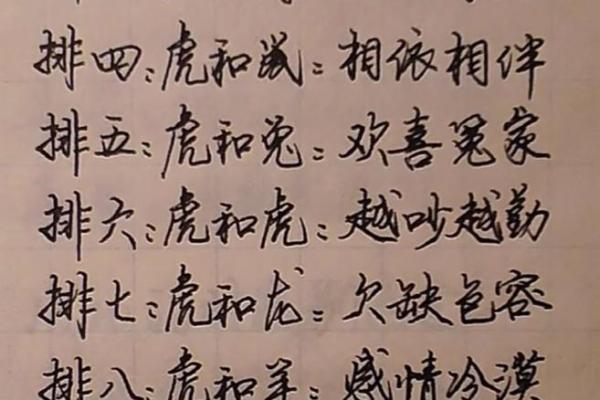 排四：虎和鼠：相依相伴
排五：虎和兔：欢喜冤家
排六：虎和虎：越吵越勤
排七：虎和龙：欠缺包容
排八：虎和羊：感情冷漠